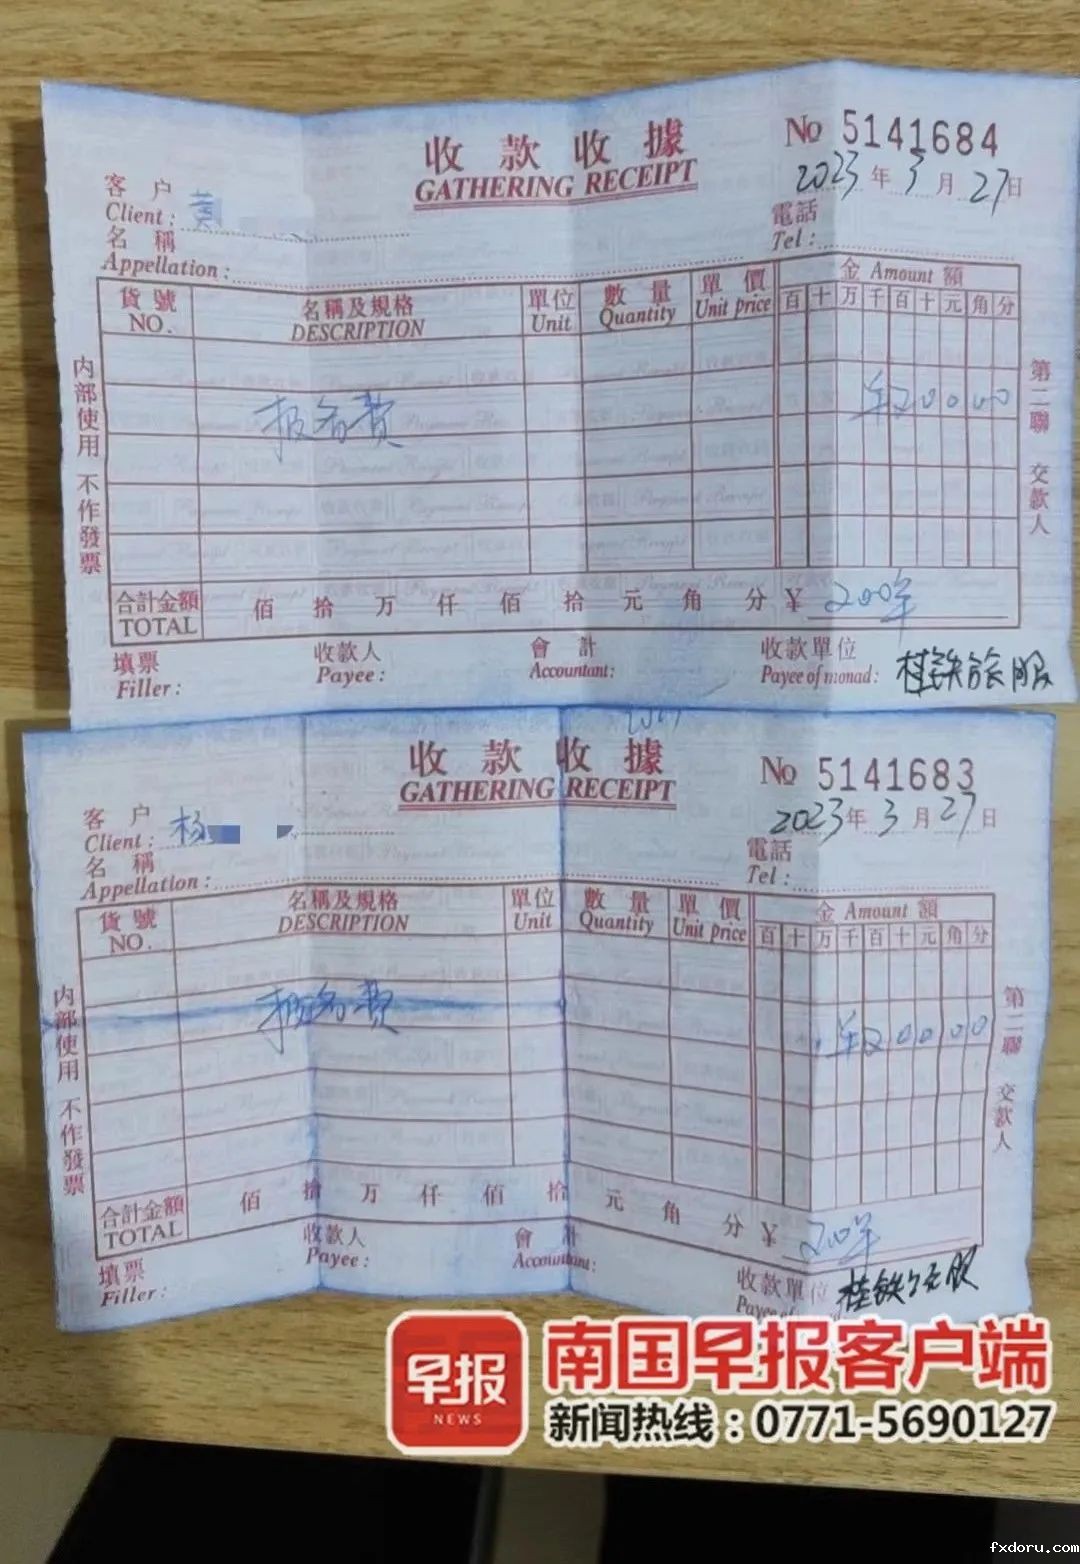 收款收據
GATHERING RECEIPT
№ 5141684
2023年3月27日
客戶
Client: 黄
電話
Tel:
名稱
Appellation:
貨號 名稱及規格 單位 數量 單價 金 Amount 額
NO. DESCRIPTION Unit Quantity Unit price 百 十 万 千 百 十 元 角 分
报名费 20000
內部使用 不作發票
第二聯 交款人
合計金額 佰 拾 万 仟 佰 拾 元 角 分 ¥ 200
TOTAL
填票 收款人 會計 收款單位
Filler: Payee: Accountant: Payee of monad: 桂铁旅服
收款收據
GATHERING RECEIPT
№ 5141683
2023年3月27日
客戶
Client: 杨
電話
Tel:
名稱
Appellation:
貨號 名稱及規格 單位 數量 單價 金 Amount 額
NO. DESCRIPTION Unit Quantity Unit price 百 十 万 千 百 十 元 角 分
报名费 20000
內部使用 不作發票
第二聯 交款人
合計金額 佰 拾 万 仟 佰 拾 元 角 分 ¥ 200
TOTAL
填票 收款人 會計 收款單位
Filler: Payee: Accountant: Payee of 桂铁旅服
早报
NEWS
南国早报客户端
新闻热线：0771-5690127
fxdoru.com